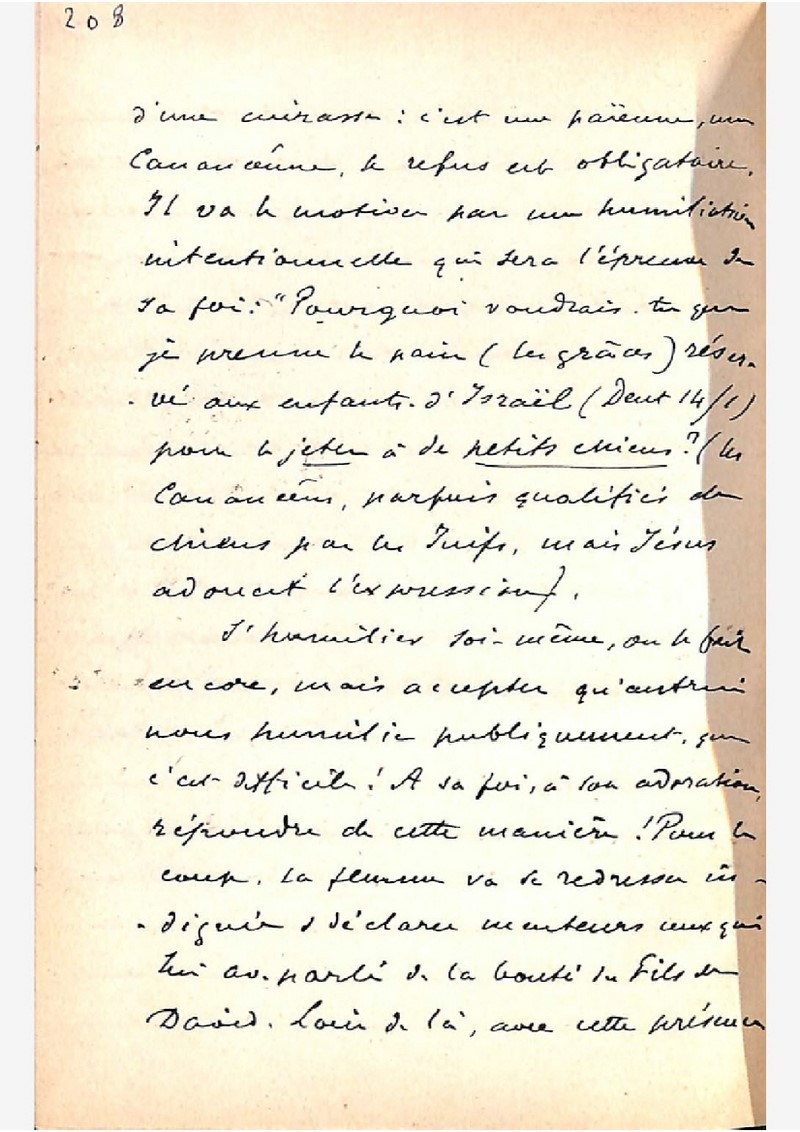 208
d'une cuirasse : c'est une païenne, une
Cananéenne, le refus est obligatoire.
Il va le motiver par une humiliation
intentionnelle qui sera l'épreuve de
sa foi : "Pourquoi voudrais-tu que
je prenne le pain (les grâces) réser-
vé aux enfants d'Israël (Deut 14/1)
pour le jeter à de petits chiens ? (les
Cananéens, parfois qualifiés de
chiens par les Juifs, mais Jésus
adoucit l'expression).
S'humilier soi-même, on le fait
encore, mais accepter qu'autrui
nous humilie publiquement, que
c'est difficile ! A sa foi, à son adoration,
répondre de cette manière ! Pour le
coup, la femme va se redresser in-
dignée & déclarer menteurs ceux qui
lui av. parlé de la bonté du Fils de
David. Loin de là, avec cette présence